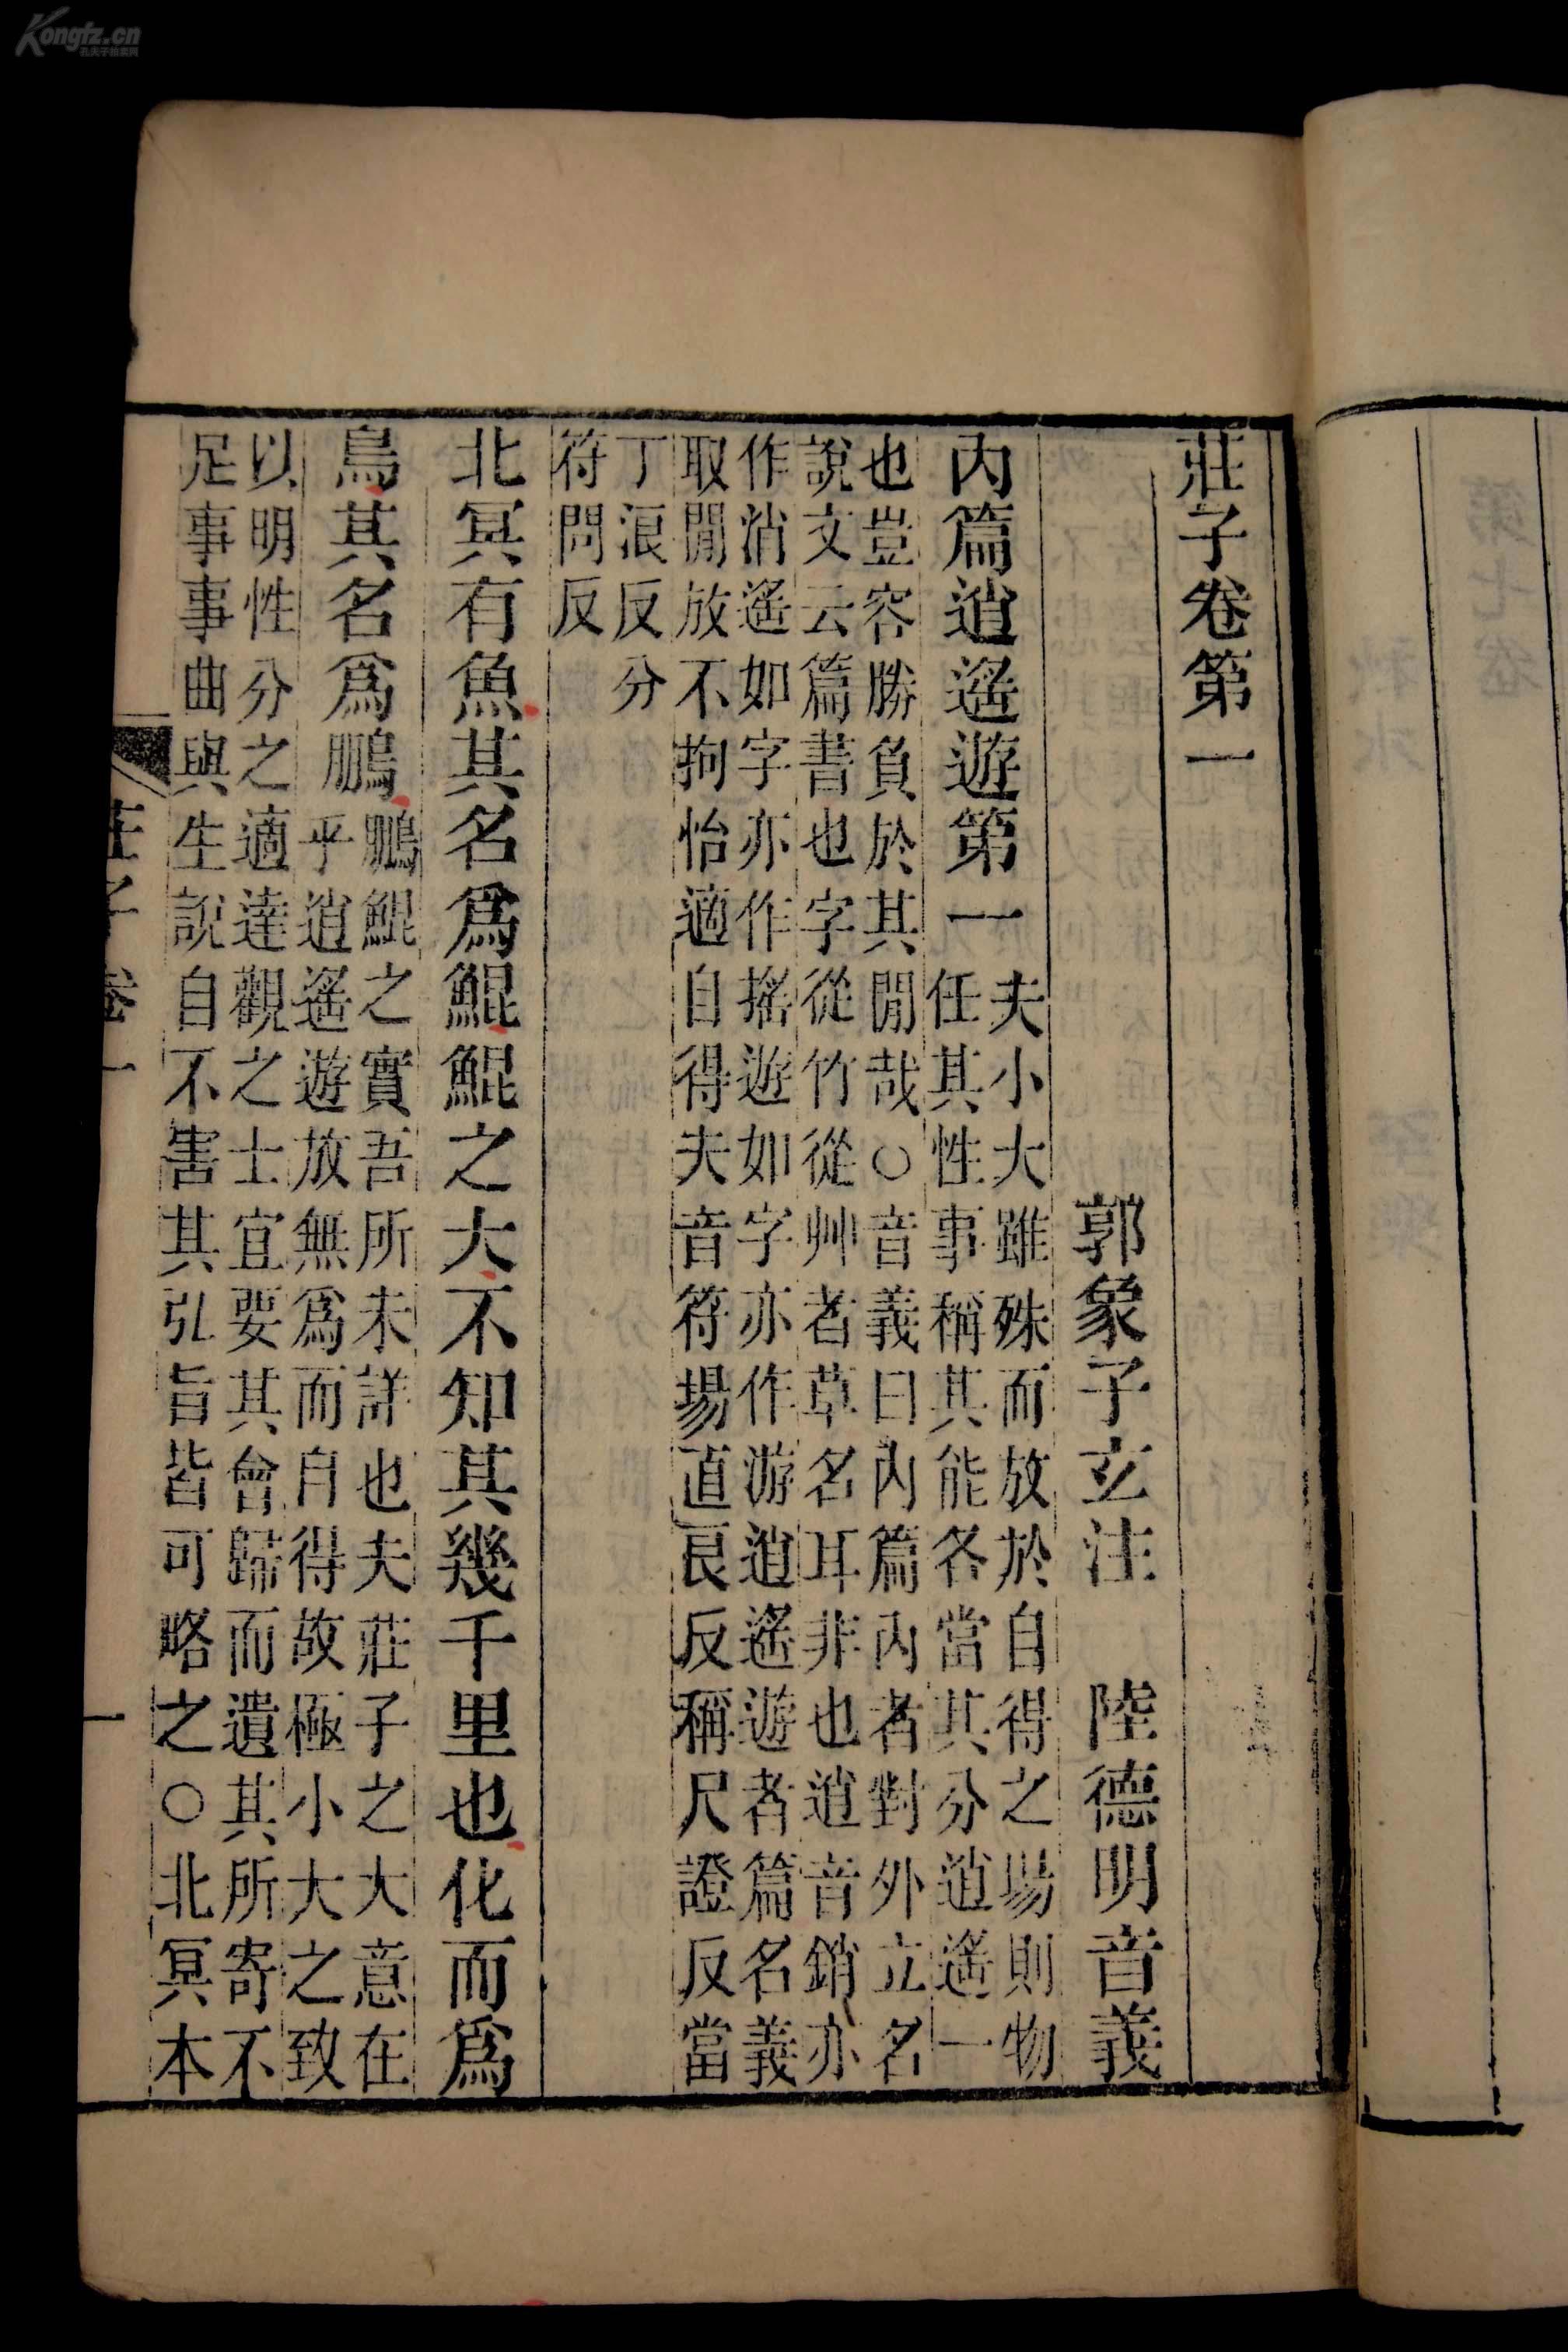 莊子卷第一
郭象子玄注 陸德明音義
內篇逍遙遊第一
夫小大雖殊而放於自得之場則物
任其性事稱其能各當其分逍遙一
也豈容勝負於其閒哉○音義曰內篇內者對外立名
說文云篇書也字從竹從艸者草名耳非也逍音銷亦
作消遙如字亦作搖遊如字亦作游逍遙遊者篇名義
取閒放不拘怡適自得夫音符場直良反稱尺證反當
丁浪反分
符問反
北冥有魚其名爲鯤鯤之大不知其幾千里也化而爲
鳥其名爲鵬
鵬鯤之實吾所未詳也夫莊子之大意在
乎逍遙遊放無爲而自得故極小大之致
以明性分之適達觀之士宜要其會歸而遺其所寄不
足事事曲與生說自不害其弘旨皆可略之○北冥本
莊子卷一
一
Kongfz.cn
孔夫子旧书网